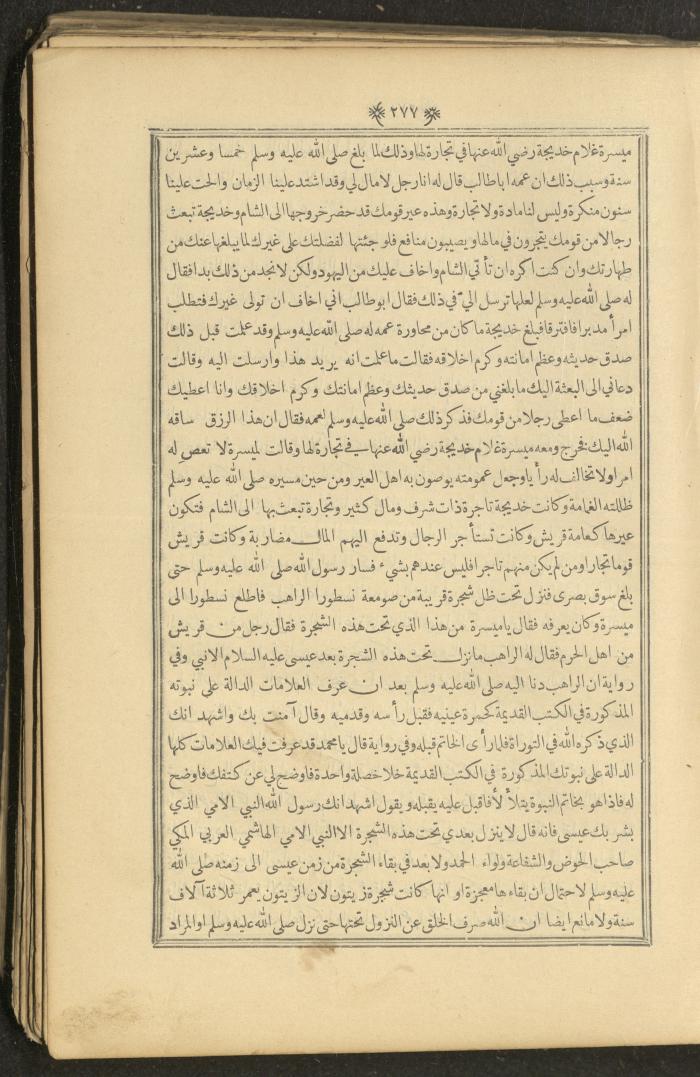 ٢٧٧
ميسرة غلام خديجة رضي الله عنها في تجارة لها وذلك لما بلغ صلى الله عليه وسلم خمسا وعشرين
سنة وسبب ذلك ان عمه ابا طالب قال له انا رجل لا مال لي وقد اشتد علينا الزمان والحت علينا
سنون منكرة وليس لنا مادة ولا تجارة وهذه عير قومك قد حضر خروجها الى الشام وخديجة تبعث
رجالا من قومك يتجرون في مالها ويصيبون منافع فلو جئتها لفضلتك على غيرك لما يبلغها عنك من
طهارتك وان كنت اكره ان تأتي الشام واخاف عليك من اليهود ولكن لا نجد من ذلك بدا فقال
له صلى الله عليه وسلم لعلها ترسل اليّ في ذلك فقال ابو طالب اني اخاف ان تولى غيرك فتطلب
امرأ مدبرا فافترقا فبلغ خديجة ما كان من محاورة عمه له صلى الله عليه وسلم وقد علمت قبل ذلك
صدق حديثه وعظم امانته وكرم اخلاقه فقالت ما علمت انه يريد هذا وارسلت اليه وقالت
دعاني الى البعثة اليك ما بلغني من صدق حديثك وعظم امانتك وكرم اخلاقك وانا اعطيك
ضعف ما اعطى رجلا من قومك فذكر ذلك صلى الله عليه وسلم لعمه فقال ان هذا الرزق ساقه
الله اليك فخرج ومعه ميسرة غلام خديجة رضي الله عنها في تجارة لها وقالت لميسرة لا تعص له
امرا ولا تخالف له رأيا وجعل عمومته يوصون به اهل العير ومن حين مسيره صلى الله عليه وسلم
ظللته الغمامة وكانت خديجة تاجرة ذات شرف ومال كثير وتجارة تبعث بها الى الشام فتكون
عيرها كعامة قريش وكانت تستأجر الرجال وتدفع اليهم المال مضاربة وكانت قريش
قوما تجارا ومن لم يكن منهم تاجرا فليس عندهم بشيء فسار رسول الله صلى الله عليه وسلم حتى
بلغ سوق بصرى فنزل تحت ظل شجرة قريبة من صومعة نسطورا الراهب فاطلع نسطورا الى
ميسرة وكان يعرفه فقال يا ميسرة من هذا الذي تحت هذه الشجرة فقال رجل من قريش
من اهل الحرم فقال له الراهب ما نزل تحت هذه الشجرة بعد عيسى عليه السلام الا نبي وفي
رواية ان الراهب دنا اليه صلى الله عليه وسلم بعد ان عرف العلامات الدالة على نبوته
المذكورة في الكتب القديمة كحمرة عينيه فقبل رأسه وقدميه وقال آمنت بك واشهد انك
الذي ذكره الله في التوراة فلما رأى الخاتم قبله وفي رواية قال يا محمد قد عرفت فيك العلامات كلها
الدالة على نبوتك المذكورة في الكتب القديمة خلا خصلة واحدة فاوضح لي عن كتفك فاوضح
له فاذا هو بخاتم النبوة يتلألأ فاقبل عليه يقبله ويقول اشهد انك رسول الله النبي الامي الذي
بشر بك عيسى فانه قال لا ينزل بعدي تحت هذه الشجرة الا النبي الامي الهاشمي العربي المكي
صاحب الحوض والشفاعة ولواء الحمد ولا بعد في بقاء الشجرة من زمن عيسى الى زمنه صلى الله
عليه وسلم لاحتمال ان بقاءها معجزة او انها كانت شجرة زيتون لان الزيتون يعمر ثلاثة آلاف
سنة ولا مانع ايضا ان الله صرف الخلق عن النزول تحتها حتى نزل صلى الله عليه وسلم او المراد